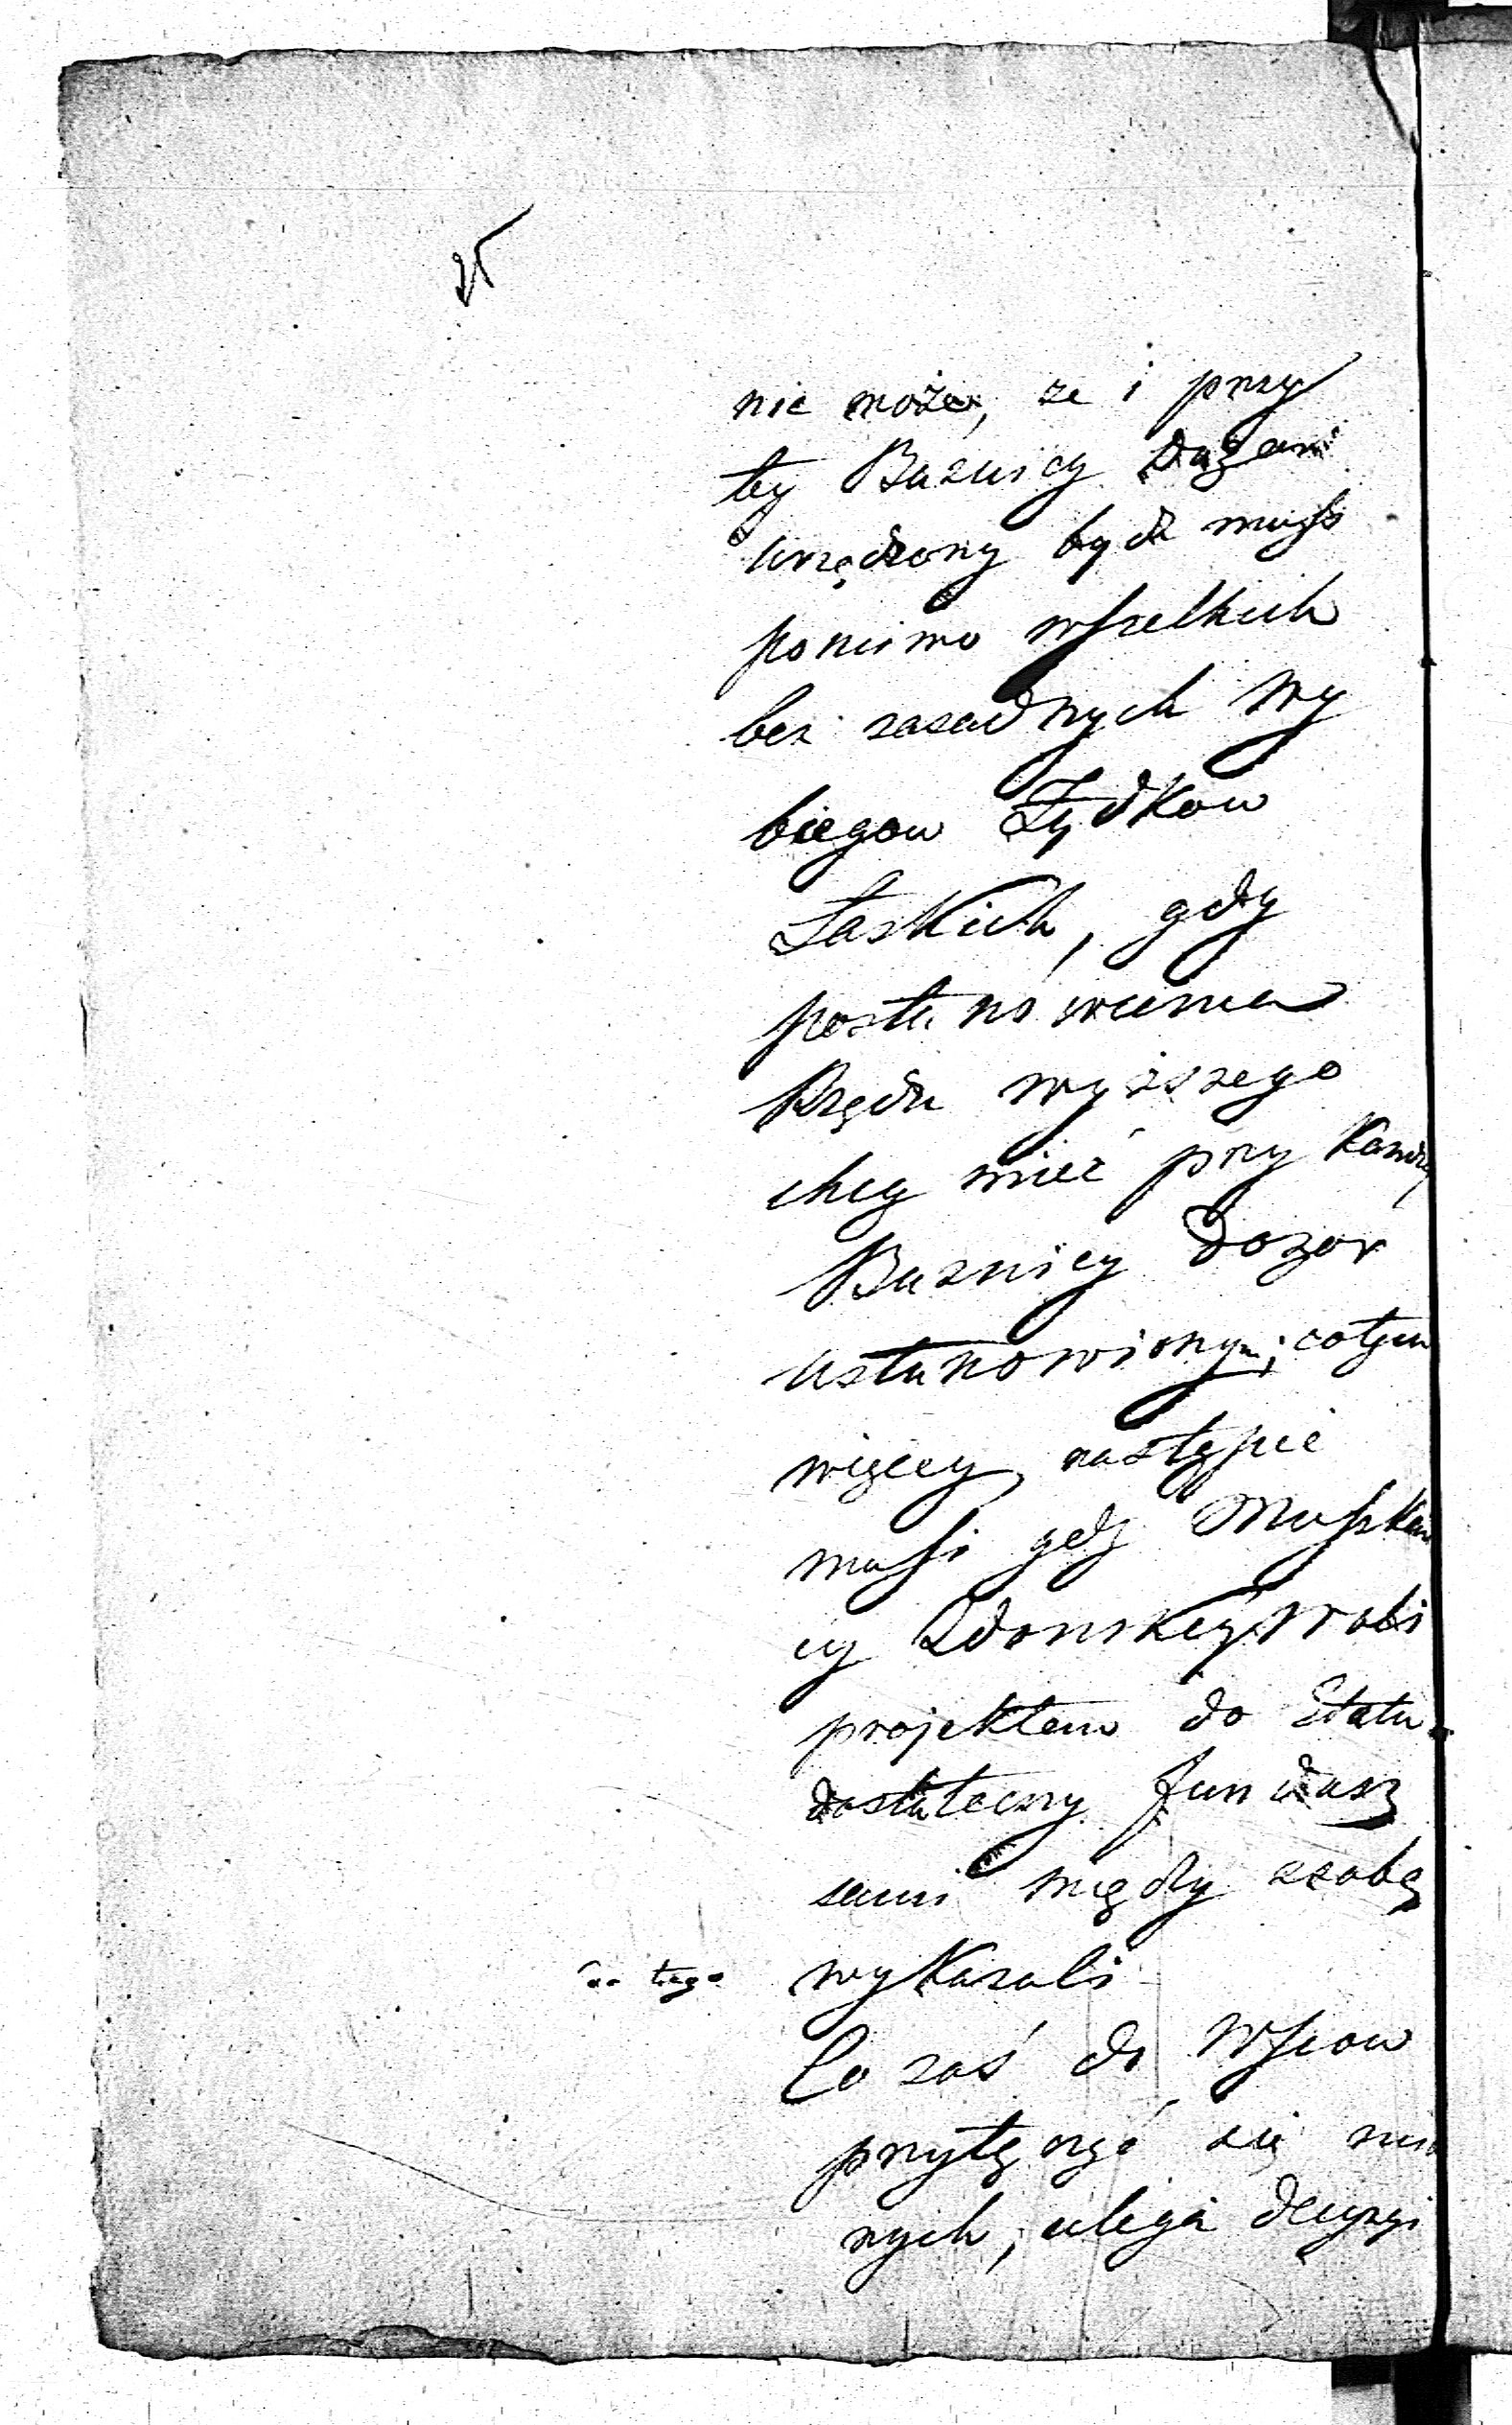 25
nie może, ze i przy
tey Buznicy Dozór
urządzony bydź musi
pomimo wszelkich
bez zasadnych wy
biegow Żydkow
Łaskich, gdy
postanowienia
Rządu wyższego
chcą mieć przy Każdey
Buznicy Dozor
ustanowionym; co tym
więcey nastąpić
musi gdy Mieszkan
cy Zdonskiey Woli
projektem do Etatu
dostateczny fundusz
sami między szobą
do tego wykazali
Co zaś do Wsiow
przytączyć się mia
nych, ulega decyzyi